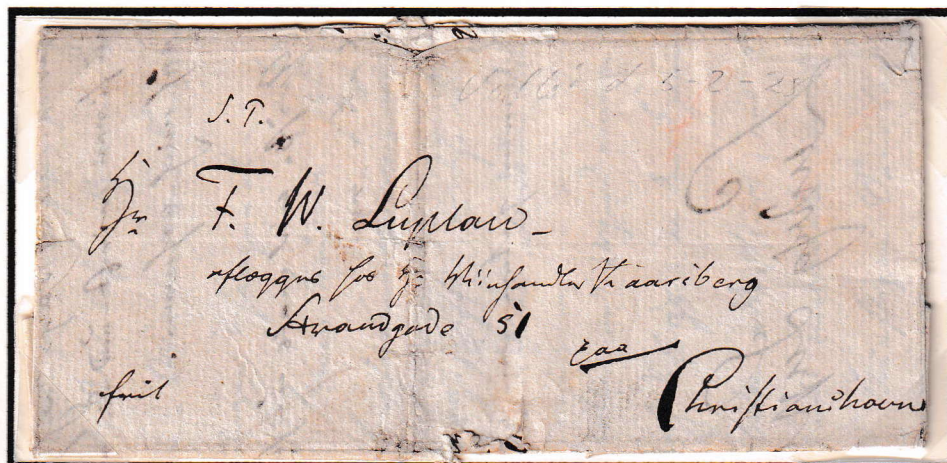 5-2-28
S. T.
Hr F. W. Luplau
aflægges hos Hr Viinhandler Kaarsberg
Strandgade 51
paa
Christianshavn
frit